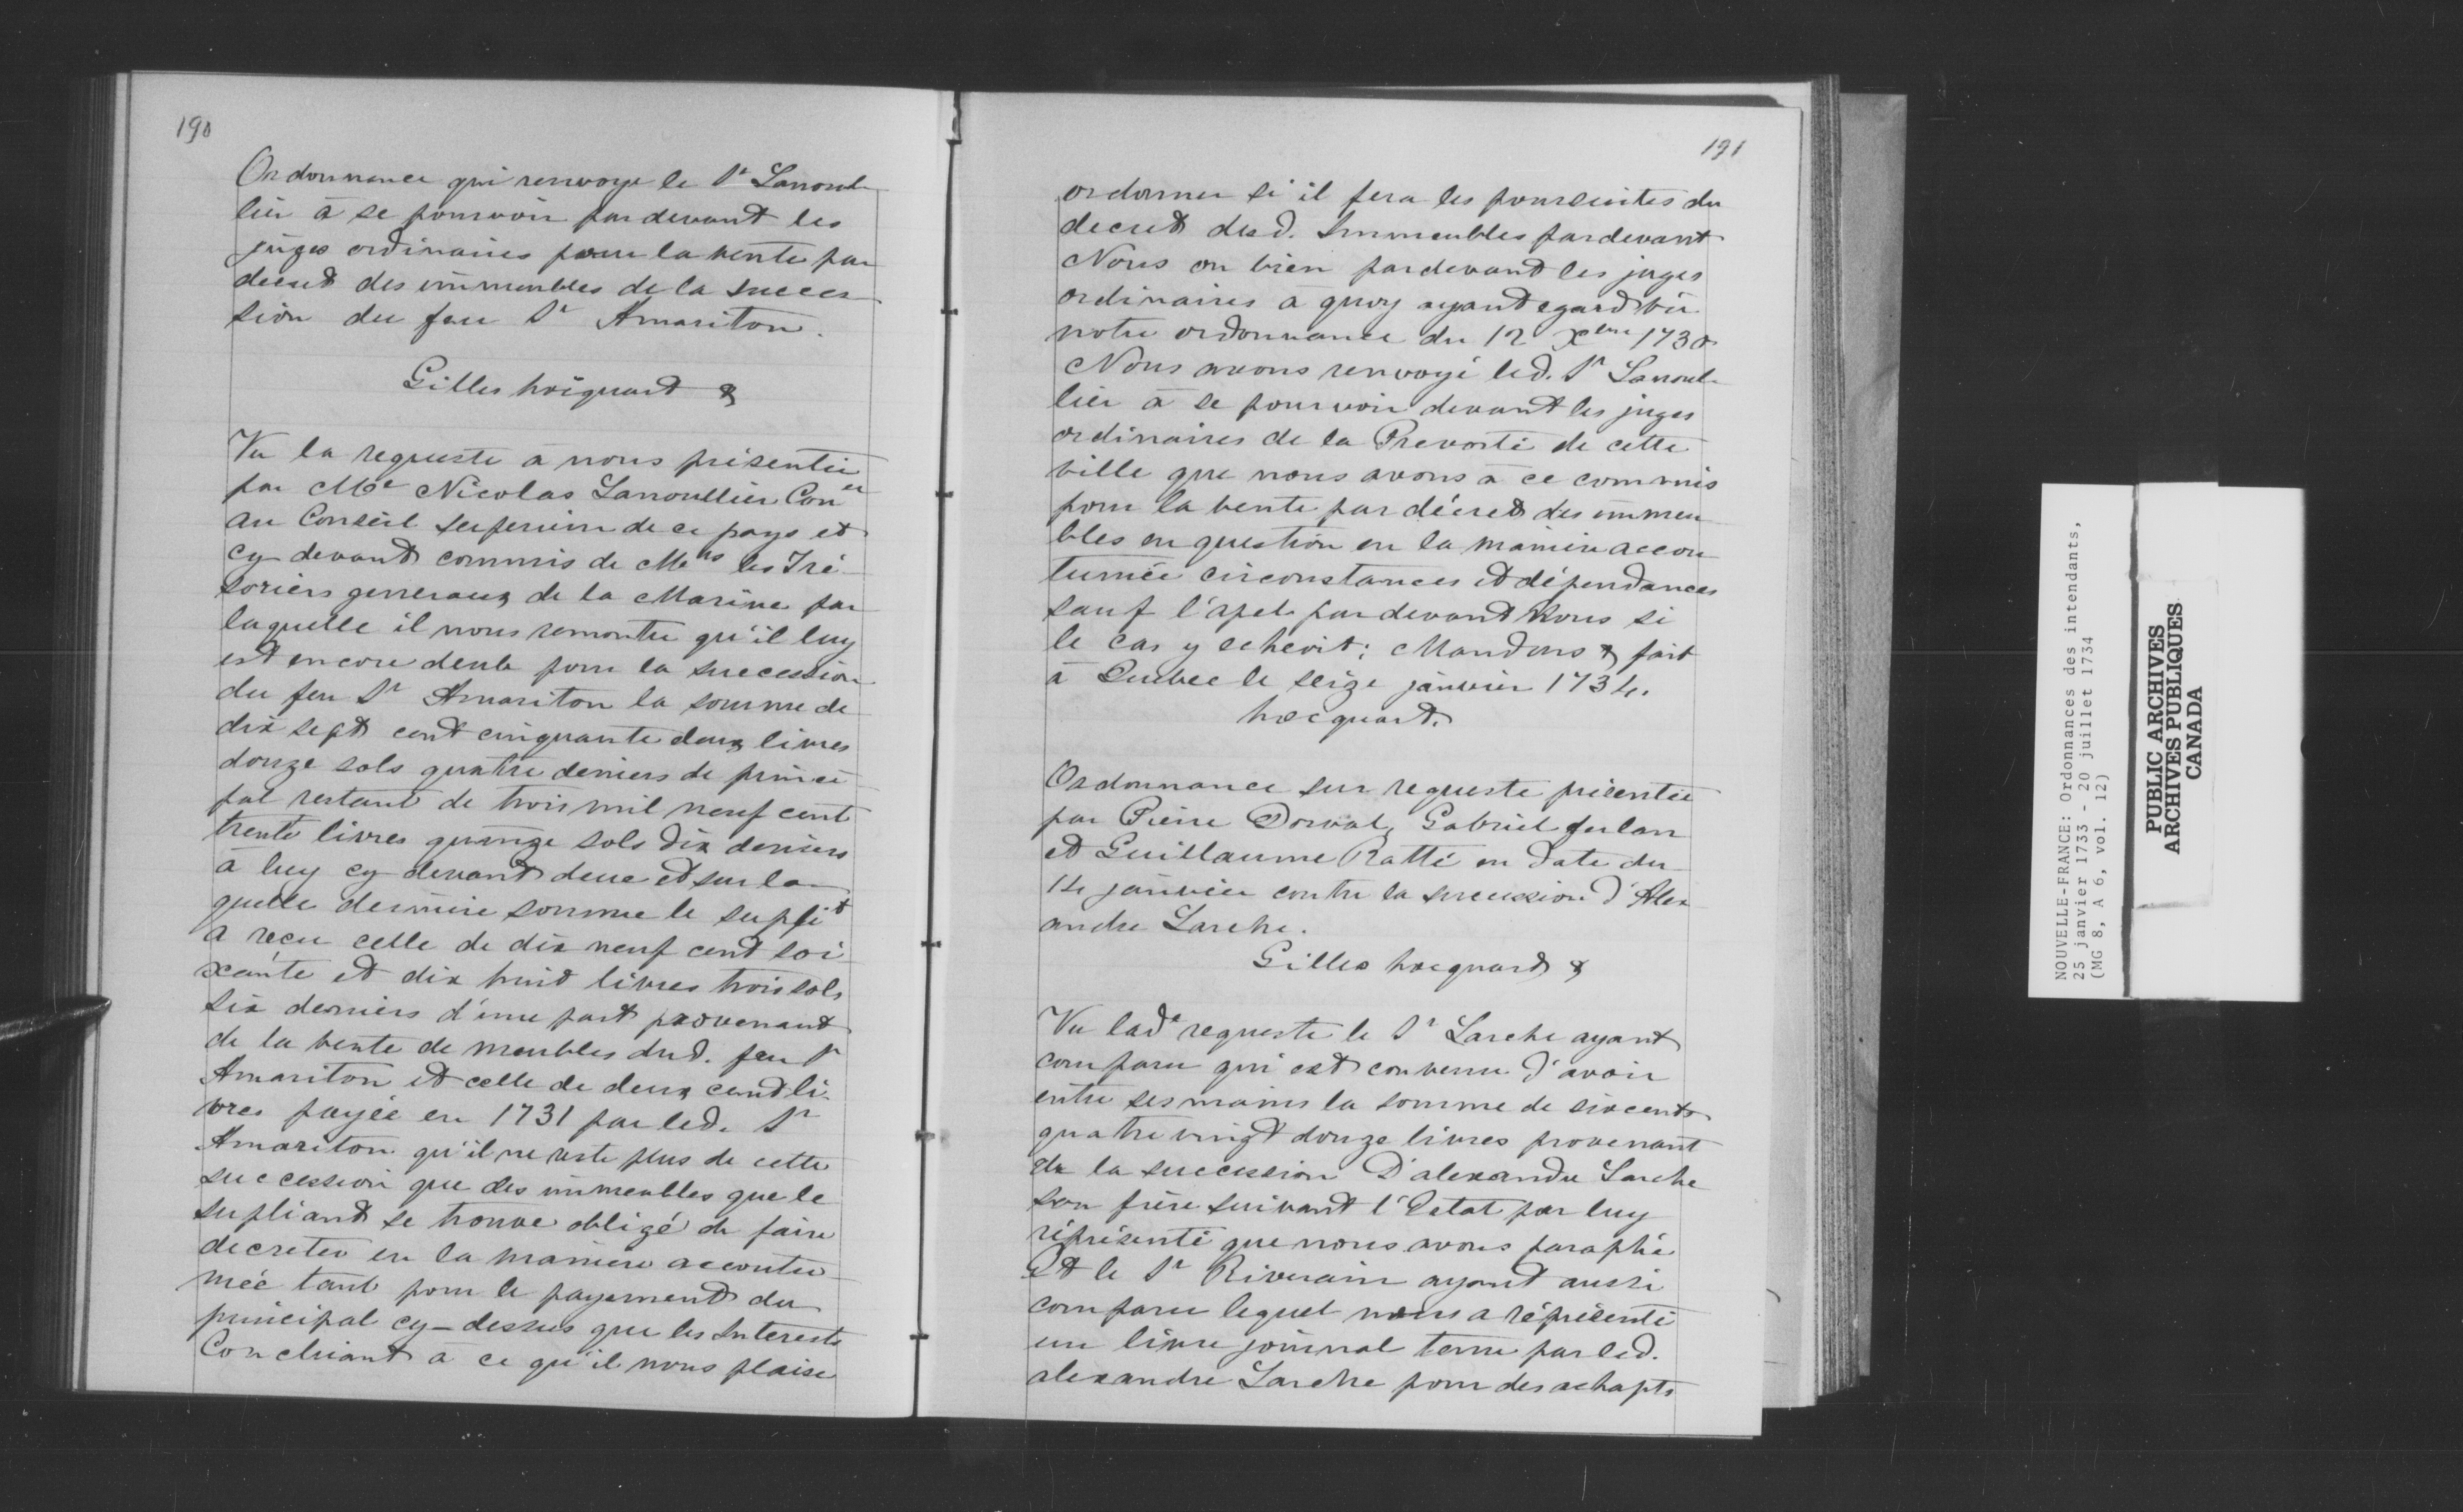 190
Ordonnance qui renvoye le Sr Lanoul-
lier à se pourvoir pardevant les
juges ordinaires pour la vente par
decret des immeubles de la succes-
sion du feu Sr Amariton.
Gilles hocquart &
Vu la requeste à nous présentée
par Me Nicolas Lanoullier Coner
au Conseil superieur de ce pays et
cy devant commis de Mrs les Tré-
soriers generaux de la Marine par
laquelle il nous remontre qu'il luy
est encore deub pour la succession
du feu Sr Amariton la somme de
dix sept cent cinquante deux livres
douze sols quatre deniers de princi-
pal restant de trois mil neuf cent
trente livres quinze sols dix deniers
à luy cy devant deue et sur la-
quelle derniere somme le suplit
a reçu celle de dix neuf cent soi-
xante et dix huit livres trois sols
six deniers d'une part provenant
de la vente de meubles dud. feu Sr
Amariton et celle de deux cent li-
vres payée en 1731 par led. Sr
Amariton qu'il ne reste plus de cette
succession que des immeubles que le
supliant se trouve obligé de faire
decreter en la maniere accoutu-
mée tant pour le payement du
principal cy-dessus que les Interests
Concluant à ce qu'il nous plaise
191
ordonner si il fera les poursuites du
decret desd. Immeubles pardevant
Nous ou bien pardevant les juges
ordinaires à quoy ayant egard vû
notre ordonnance du 12 Xbre 1730
Nous avons renvoyé led. Sr Lanoul-
lier à se pourvoir devant les juges
ordinaires de la Prevosté de cette
ville que nous avons à ce commis
pour la vente par décret des immeu-
bles en question en la maniere accou-
tumée circonstances et dépendances
sauf l'apel pardevant Nous si
le cas y echeoit; Mandons & fait
à Quebec le seize janvier 1734.
hocquart.
Ordonnance sur requeste présentée
par Pierre Dorval, Gabriel
et Guillaume Ratté en date du
14 janvier contre la succession d'Alex-
andre Larche.
Gilles hocquart &
Vu lade requeste le Sr Larche ayant
comparu qui est convenu d'avoir
entre ses mains la somme de six cents
quatre vingt douze livres provenant
de la succession D'alexandre Larche
son frère suivant l'Estat par luy
réprésenté que nous avons paraphé
Et le Sr Riverain ayant aussi
comparu lequel nous a réprésenté
un livre journal tenu par led.
alexandre Larche pour des achapts
NOUVELLE-FRANCE: Ordonnances des intendants,
25 janvier 1733 - 20 juillet 1734
(MG 8, A 6, vol. 12)
PUBLIC ARCHIVES
ARCHIVES PUBLIQUES
CANADA